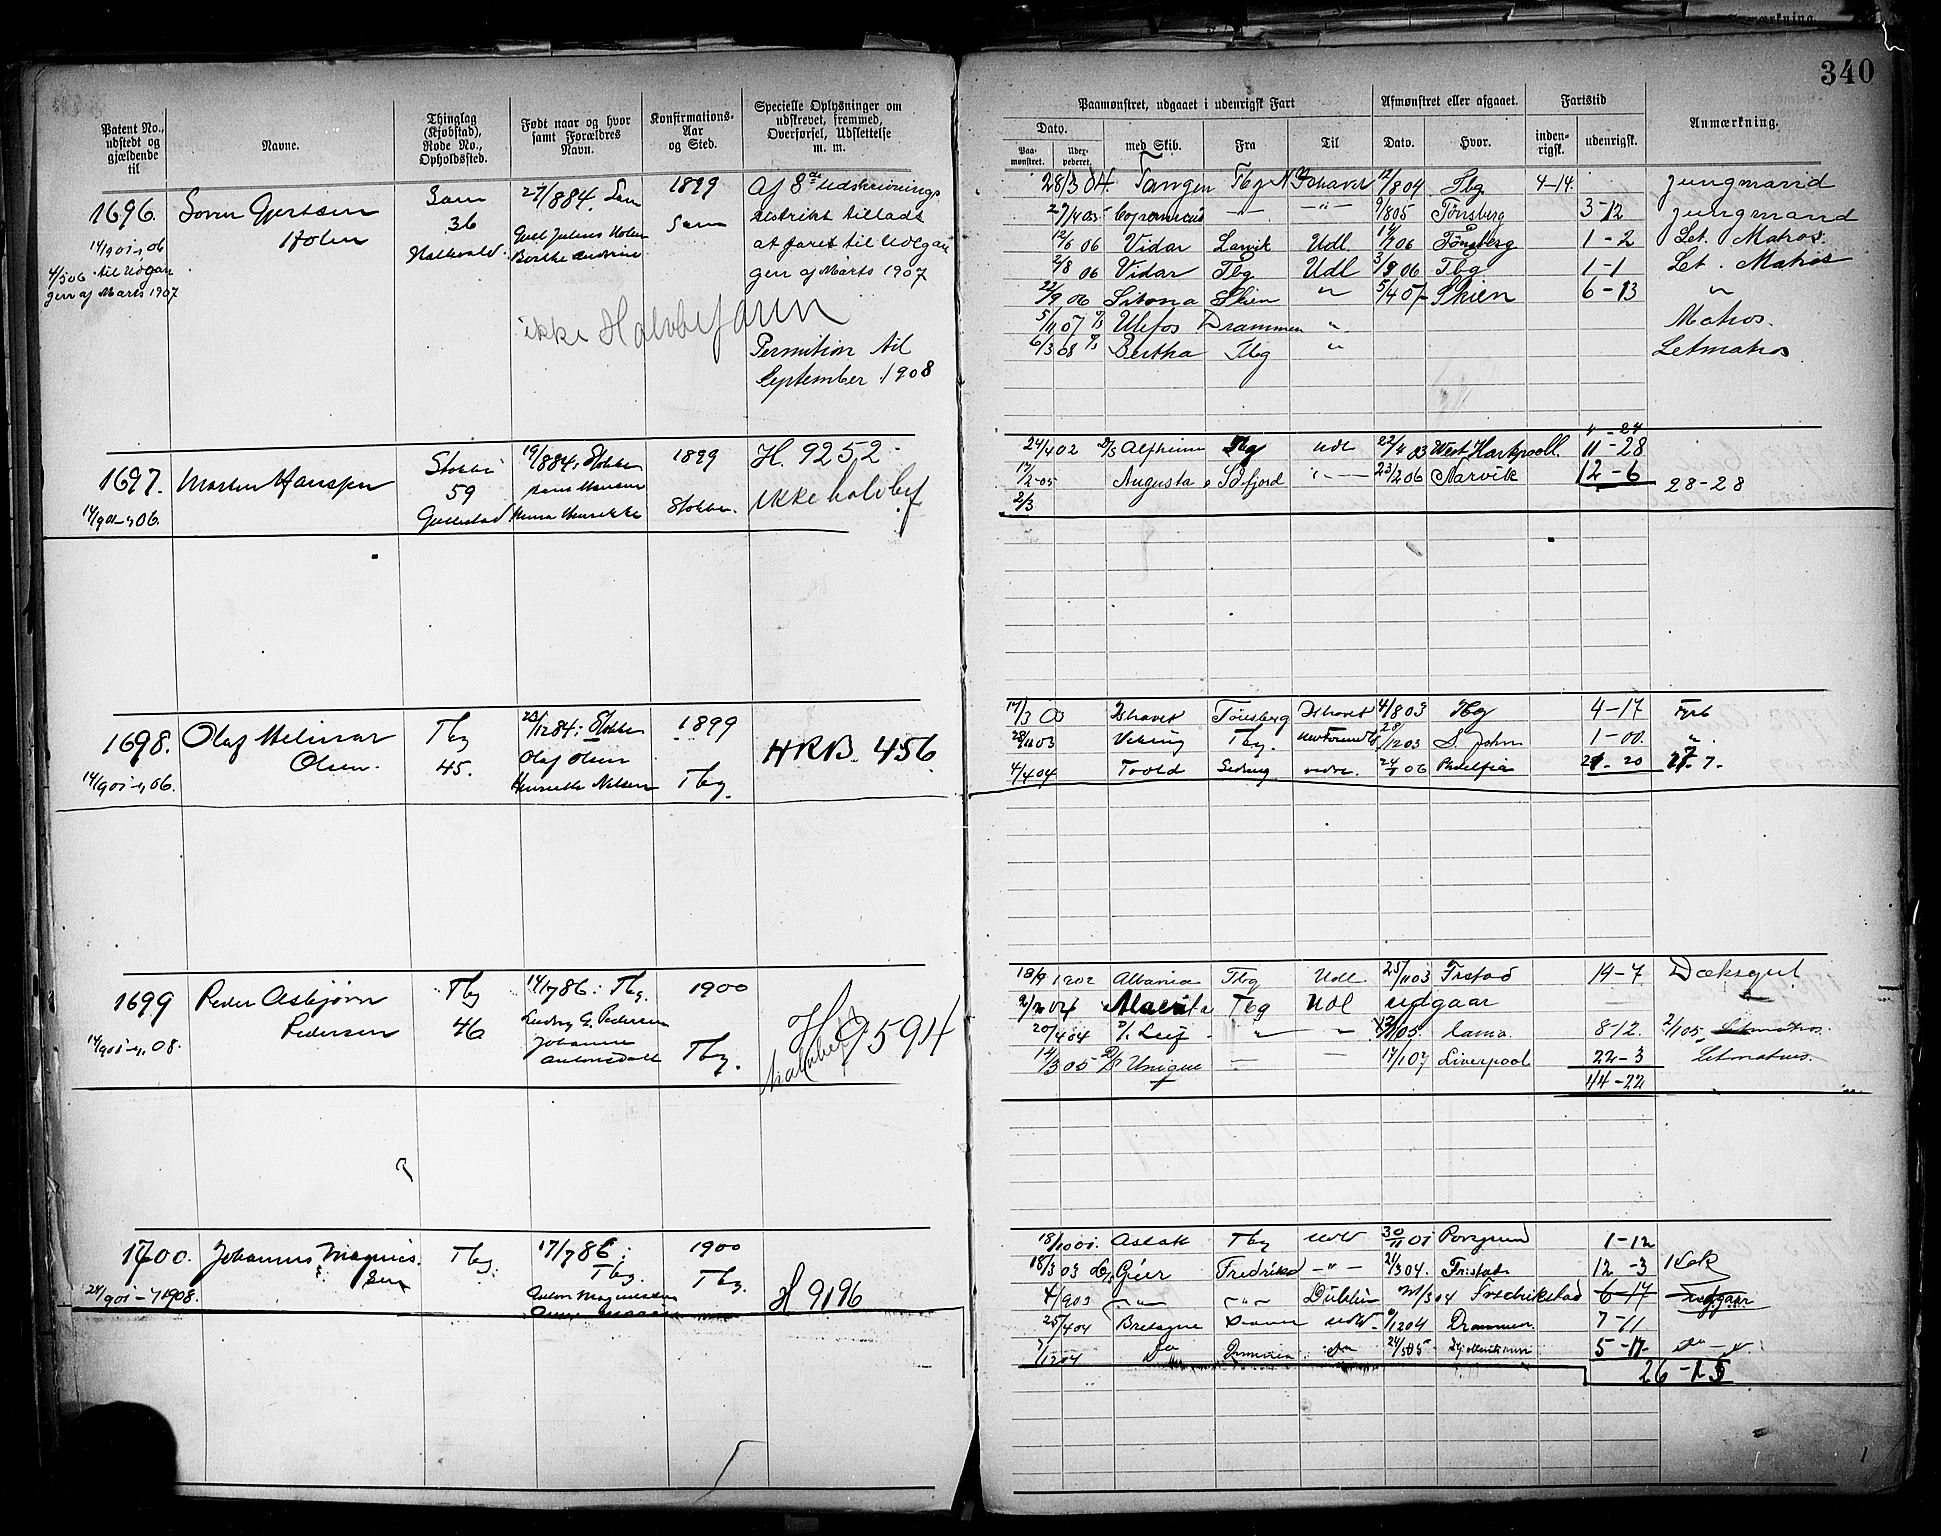 340
Patent No., udstedt og gjældende til
Navne.
Thinglag (Kjøbstad), Rode No., Opholdssted.
Født naar og hvor samt Forældres Navn.
Konfirmations-Aar og Sted.
Specielle Oplysninger om udskrevet, fremmed, Overførsel, Udslettelse m. m.
Paamønstret, udgaaet i udenrigsk Fart
Afmønstret eller afgaaet.
Fartstid
Anmærkning.
Dato.
Paa-mønstret.
med Skib.
Fra
Til
Dato.
Hvor.
inden-rigsk.
udenrigsk.
1696.
Soren Gjertsen
Holm
Sem
36
27/884. Sem
1899
Sem
Af 8de Udskrivnings
distrikt tillads
at faret til Udgan
gen af Marts 1907
14/901-1/06
4/506 til Udgan
gen af Marts 1907
ikke Halvbefaren
Permition til
September 1908
28/3 04 Tangen Tbg Ishavet 12/804 Tbg 4-14 Jungmand
27/403 Copernicus -"- -"- 9/805 Tønsberg 3-12 Jungmand
12/6 06 Vidar Larvik Udl 14/7 06 Tønsberg 1-2 Let. Matros.
2/8 06 Vidar Tbg Udl 3/9 06 Tbg 1-1 Let. Matros
22/9 06 Sitona Skien " 5/4 07 Skien 6-13 "
5/11 07 Ulefos Drammen " Matros.
6/3 08 Bertha Tbg " Letmatros
1697.
Morten Hansen
Stokke
59
19/884. Stokke
Hans Hansen
1899
Stokke.
H. 9252.
ikke halvbef
14/901-1/06.
24/402 D/S Alfheim Tbg Udl 22/4 03 West Hartpooll. 11-28
Augusta Sdfjord 23/206 Narvik 12-6 28-28
2/3
1698.
Olaf Hilmar
Olsen.
Tbg
45.
23/1284. Stokke
Olaf Olsen
Henrikke Nilsen
1899
Tbg.
HRB. 456
14/901-1/06.
17/3 03 Ishavet Tønsberg Ishavet 4/803 Tbg 4-17 Fyrb
28/903 Viking Tbg. 28/1203 S. John 1-00. "
4/404 Told 24/ 06 20 27. 7.
1699
Peder Asbjørn
Pedersen
Tbg
46
14/786. Tbg.
Ludvig G. Pedersen
Johanne
1900
Tbg.
H 9594
Halvbef
14/901-1/08.
18/9 1902 Albania Tbg Udl. 25/1103 Frstad 14-7 Dæksgut
2/2 04 Tbg Udl udgaar
20/404 Leif " " 05. 8-12. 2/105 Letmatros.
14/3 05 D/S Unique - - 17/107 Liverpool 22-3 Letmatros.
44-22
1700.
Johannes Magnus
sen
Tbg.
17/786.
Tbg.
Anton Magnussen
1900
Tbg.
H 9196
24/901-1/1908.
18/1001. Aslak Tbg Udld 30/11 01 Porsgrund 1-12
18/3 03 Geir Fredriksd -"- 21/304. Fristad 12-3 Kok
4/903 -"- -"- Dublin 304 Fredrikstad 6-17 udgaar
25/404 Bretagne Udld. 9/1204 Drammen 7-11
7/1204 Do Do 24/505 5-17.
26-15